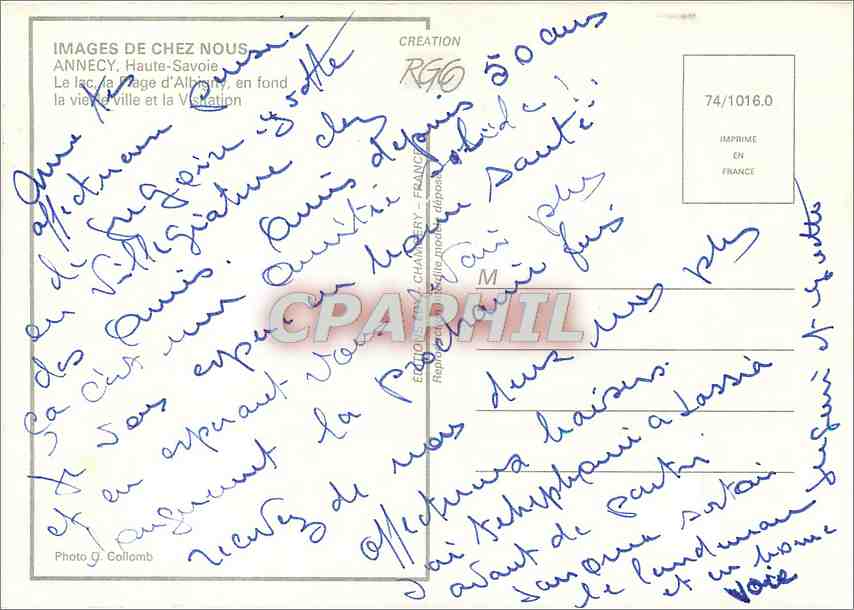 IMAGES DE CHEZ NOUS
ANNECY, Haute-Savoie
Le lac, la Plage d'Albigny, en fond
la vieille ville et la Visitation
CREATION
RGG
74/1016.0
IMPRIME
EN
FRANCE
Une très
affectueuse pensée
de Grégoire Ginette
en villégiature chez
des amis. Amis depuis 50 ans
ça c'est une amitié solide !
Je vous espère en bonne santé
et en espérant vous voir plus
longuement la prochaine fois
recevez de nous deux nos plus
affectueux baisers.
J'ai téléphoné à
avant de partir
sortait
le lendemain
et en bonne
voie
et Ginette
M
EDITIONS CHAMBERY - FRANCE
Reproduction interdite modèle déposé
Photo D. Collomb
CPARPHIL